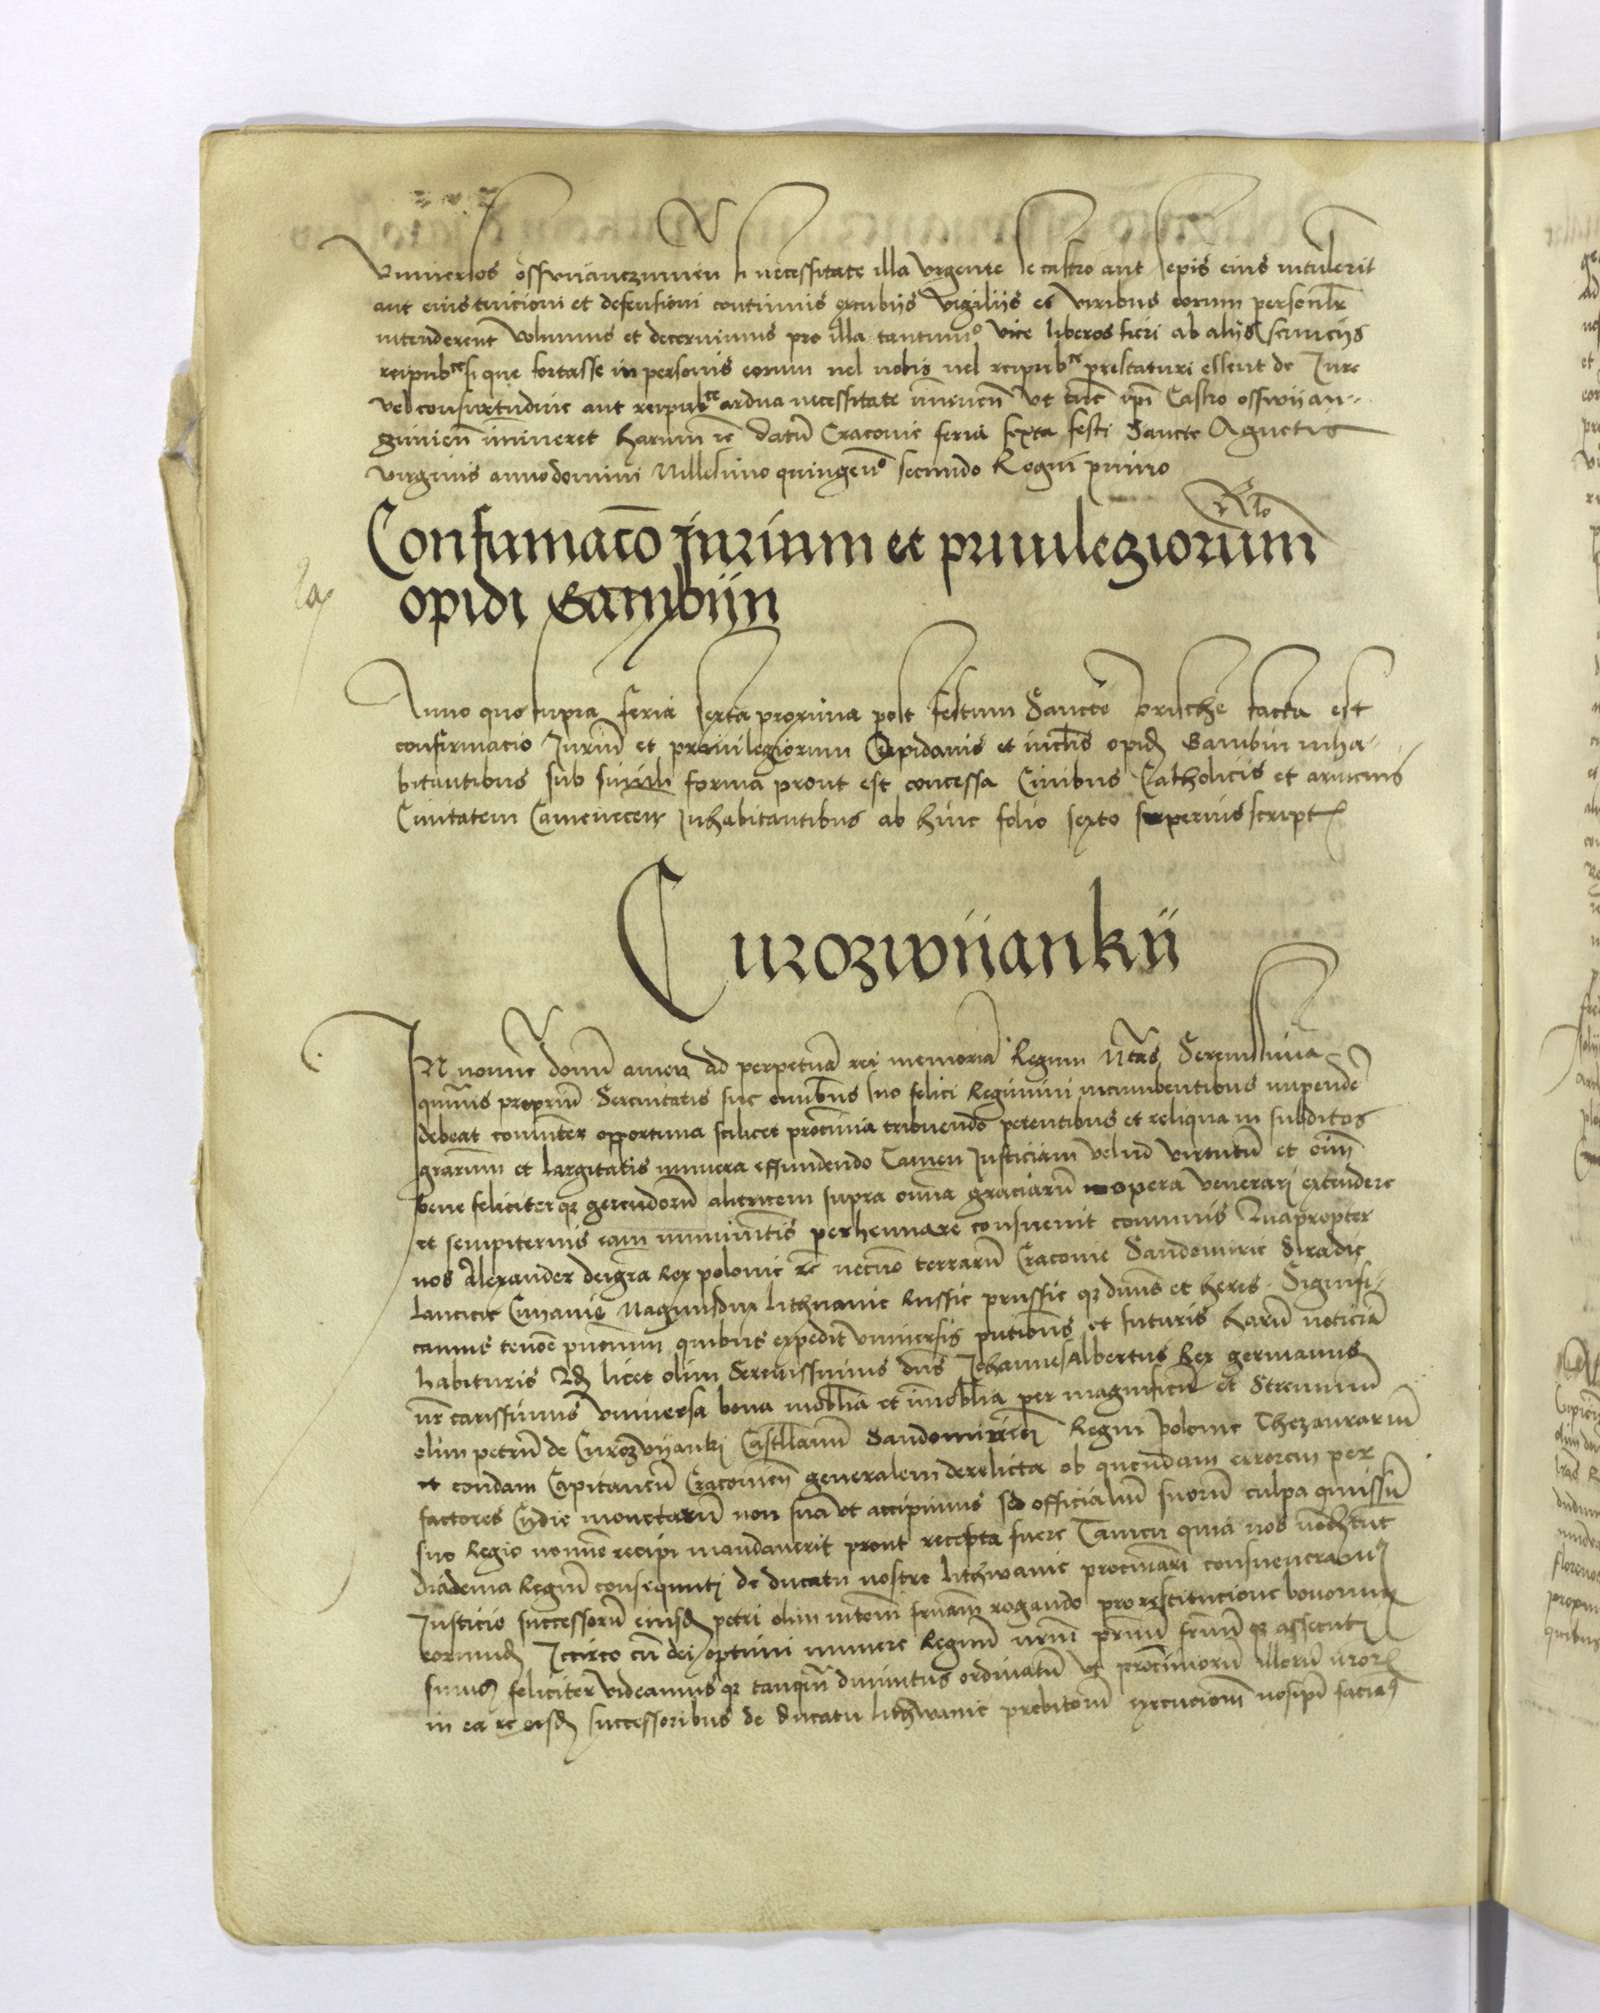 Vniuersos osswianczimen si necessitate illa vrgente se castro aut sepis eius intulerit
aut eius tuicioni et defensioni continuis excubiis vigiliis et viribus eorum personlr
intenderent volumus et decernimus pro illa tantummo vice liberos fieri ab aliis seruiciis
reipubce si que fortasse in personis eorum uel nobis uel reipubce prestaturi essent de Jure
vel consuetudine aut reipubce ardua necessitate ut tunc ipi Castro osswiian-
zimien imineret harum rc datum Cracouie feria sexta festi Sancte Agnetis
virginis anno domini Millesimo quingeno secundo Regni primo
Rta
Confirmaco Jurium et priuilegiorum
opidi Gambiin
Anno quo supra feria sexta proxima post festum Sancte prische facta est
confirmacio Jurium et priuilegiorum Opidanis et inclis opidi Gambin inha-
bitantibus sub simili forma prout est concessa Ciuibus Catholicis et armenis
Ciuitatem Camenecen Inhabitantibus ab hinc folio sexto superius script
Curozwiiankii
In nomie domi amen Ad perpetuam rei memoriam Regum
proprium Serenitatis sue omnibus suo felici Regimini incumbentibus impendere
debeat comuniter opportuna scilicet premia tribuendo petentibus et reliqua in subditos
graciarum et largitatis munera effundendo Tamen Justiciam velud virtutum et oium
bene feliciter qz gerendorum altricem supra omnia graciarum opera venerari extendere
et sempiternis eam perhennare consueuit Quapropter
nos Alexander dei gra Rex polonie rc necno terrarum Cracouie Sandomirie Siradie
Lancicie Cuyauie Magnusdux lithuanie Russie prussie qz dnus et heres Signifi-
camus tenore pntium quibus expedit vniuersis pntibus et futuris harum noticiam
habituris Qd licet olim Serenissimus dns Johannes Albertus Rex germanus
nr carissimus vniuersa bona mobilia et imobilia per magnificum et Strennuum
olim petrum de Curozwyanki Castllanum Sandomirien Regni polonie Thezaurarium
et condam Capitaneum Cracouien generalem derelicta ob quendam errorem per
factores Cudie monetarum non sua ut accipimus sed officialium suorum culpa
suo Regio nomie recipi mandauerit prout recepta fuere Tamen quia nos
diadema Regium consequuti de ducatu nostro lithwanie
successorum eiusd petri olim rogando pro restitucione bonorum
eorumd Iccirco cum dei optimi munere Regnum assecuti
simus feliciter videamus qz tanqm diuinitus ordinatum illorum
in ea re eisd successoribus de ducatu lithwanie